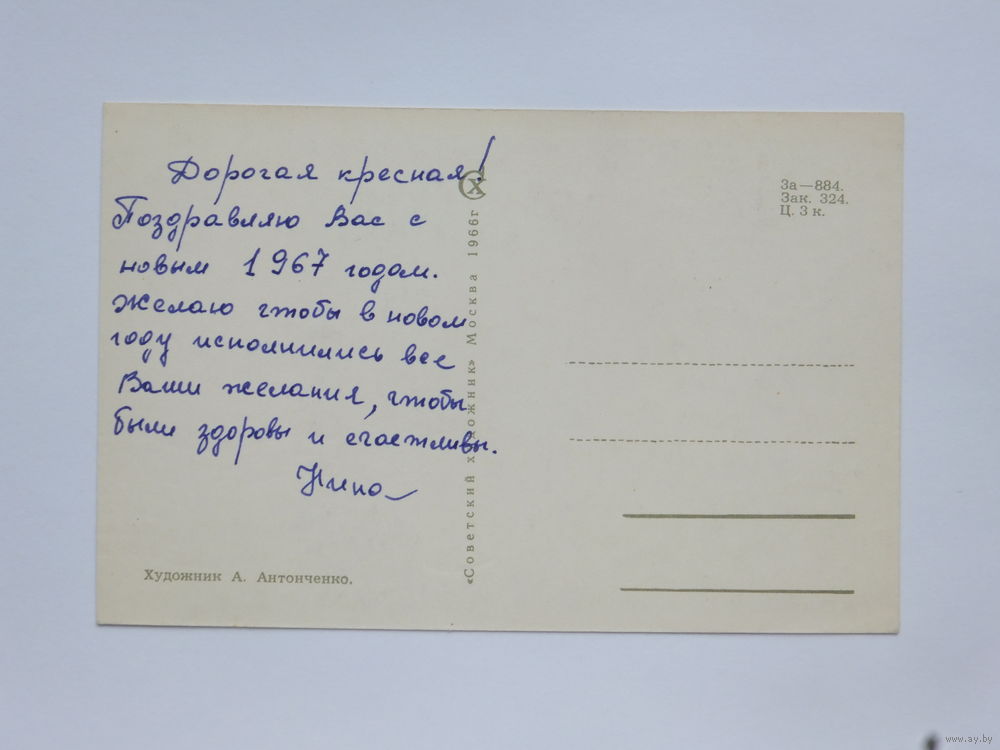 Дорогая кресная!
Поздравляю Вас с
новым 1967 годом.
Желаю чтобы в новом
году исполнились все
Ваши желания, чтобы
были здоровы и счастливы.
Нина
Художник А. Антонченко.
«Советский художник» Москва 1966г
СХ
За—884.
Зак. 324.
Ц. 3 к.
www.ay.by